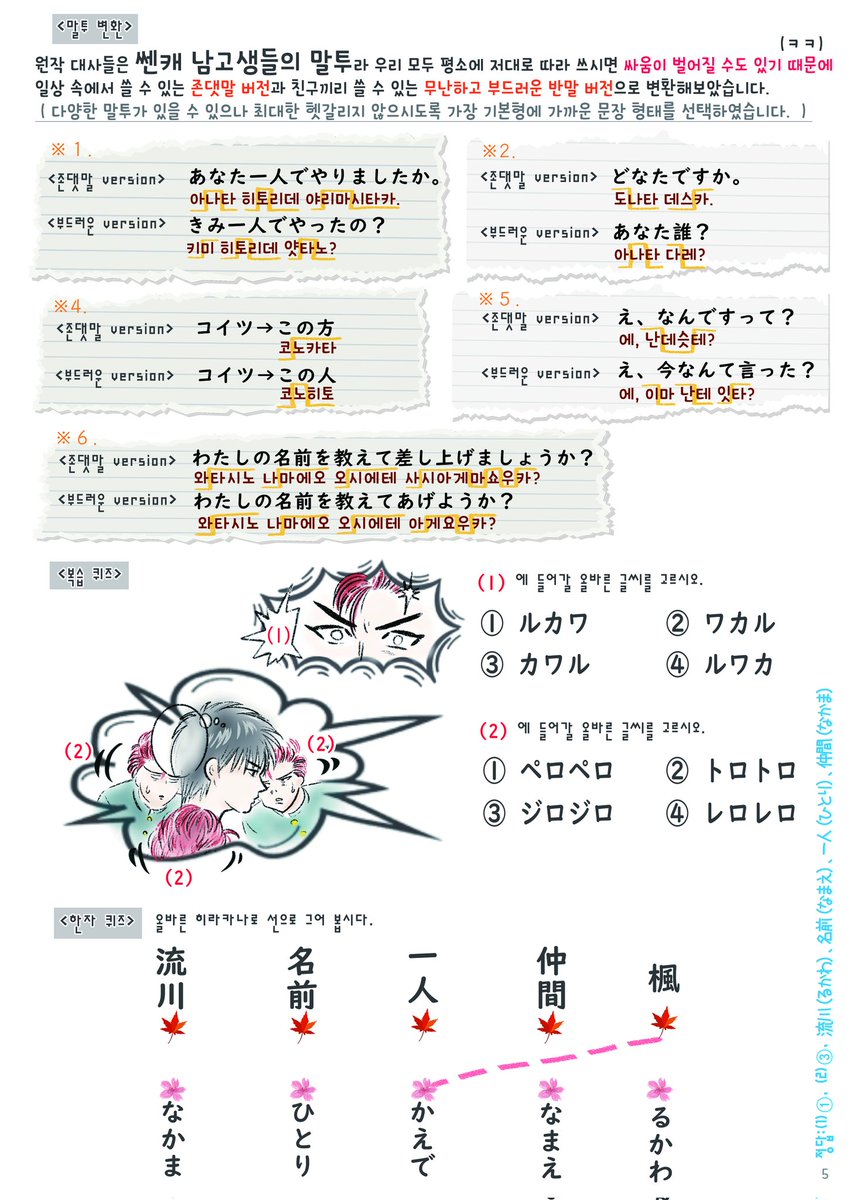 <말투 변환>
(ㅋㅋ)
원작 대사들은 쎈캐 남고생들의 말투라 우리 모두 평소에 저대로 따라 쓰시면 싸움이 벌어질 수도 있기 때문에
일상 속에서 쓸 수 있는 존댓말 버전과 친구끼리 쓸 수 있는 무난하고 부드러운 반말 버전으로 변환해보았습니다.
( 다양한 말투가 있을 수 있으나 최대한 헷갈리지 않으시도록 가장 기본형에 가까운 문장 형태를 선택하였습니다. )
※1.
<존댓말 version> あなた一人でやりましたか。
아나타 히토리데 야리마시타카.
<부드러운 version> きみ一人でやったの？
키미 히토리데 얏타노?
※2.
<존댓말 version> どなたですか。
도나타 데스카.
<부드러운 version> あなた誰？
아나타 다레?
※4.
<존댓말 version> コイツ→この方
코노카타
<부드러운 version> コイツ→この人
코노히토
※5.
<존댓말 version> え、なんですって？
에, 난데슷테?
<부드러운 version> え、今なんて言った？
에, 이마 난테 잇타?
※6.
<존댓말 version> わたしの名前を教えて差し上げましょうか？
와타시노 나마에오 오시에테 사시아게마쇼우카?
<부드러운 version> わたしの名前を教えてあげようか？
와타시노 나마에오 오시에테 아게요우카?
<복습 퀴즈>
(1)
(2)
(2)
(2)
(1) 에 들어갈 올바른 글씨를 고르시오.
① ルカワ ② ワカル
③ カワル ④ ルワカ
(2) 에 들어갈 올바른 글씨를 고르시오.
① ペロペロ ② トロトロ
③ ジロジロ ④ レロレロ
<한자 퀴즈> 올바른 히라카나로 선으로 그어 봅시다.
流川 名前 一人 仲間 楓
なかま ひとり かえで なまえ るかわ
정답:(1)①, (2)③, 流川(るかわ)、名前(なまえ)、一人(ひとり)、仲間(なかま)
5